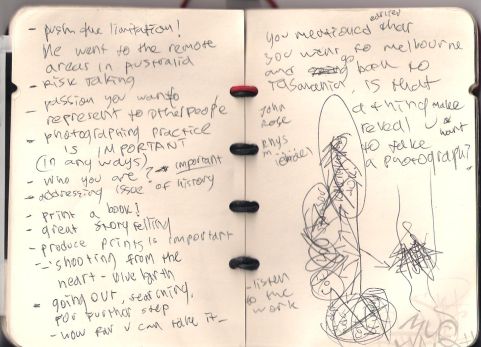 - push the limitation!
He went to the remote
areas in Australia
- Risk taking
- passion you want to
represent to other people
- photographing practice
is IMPORTANT
(in any ways)
- Who you are? - important
- addressing issue of history
- print a book!
- great story telling
- produce prints is important
- shooting from the
heart - give birth
- going out, searching,
for further step
- how far u can take it -
you mentioned that earlier
you went to melbourne
and go back to
Tasmania, is that
a thing make
reveal u want
to take
a photograph?
John
Rose
Rhys
- listen
to the
work